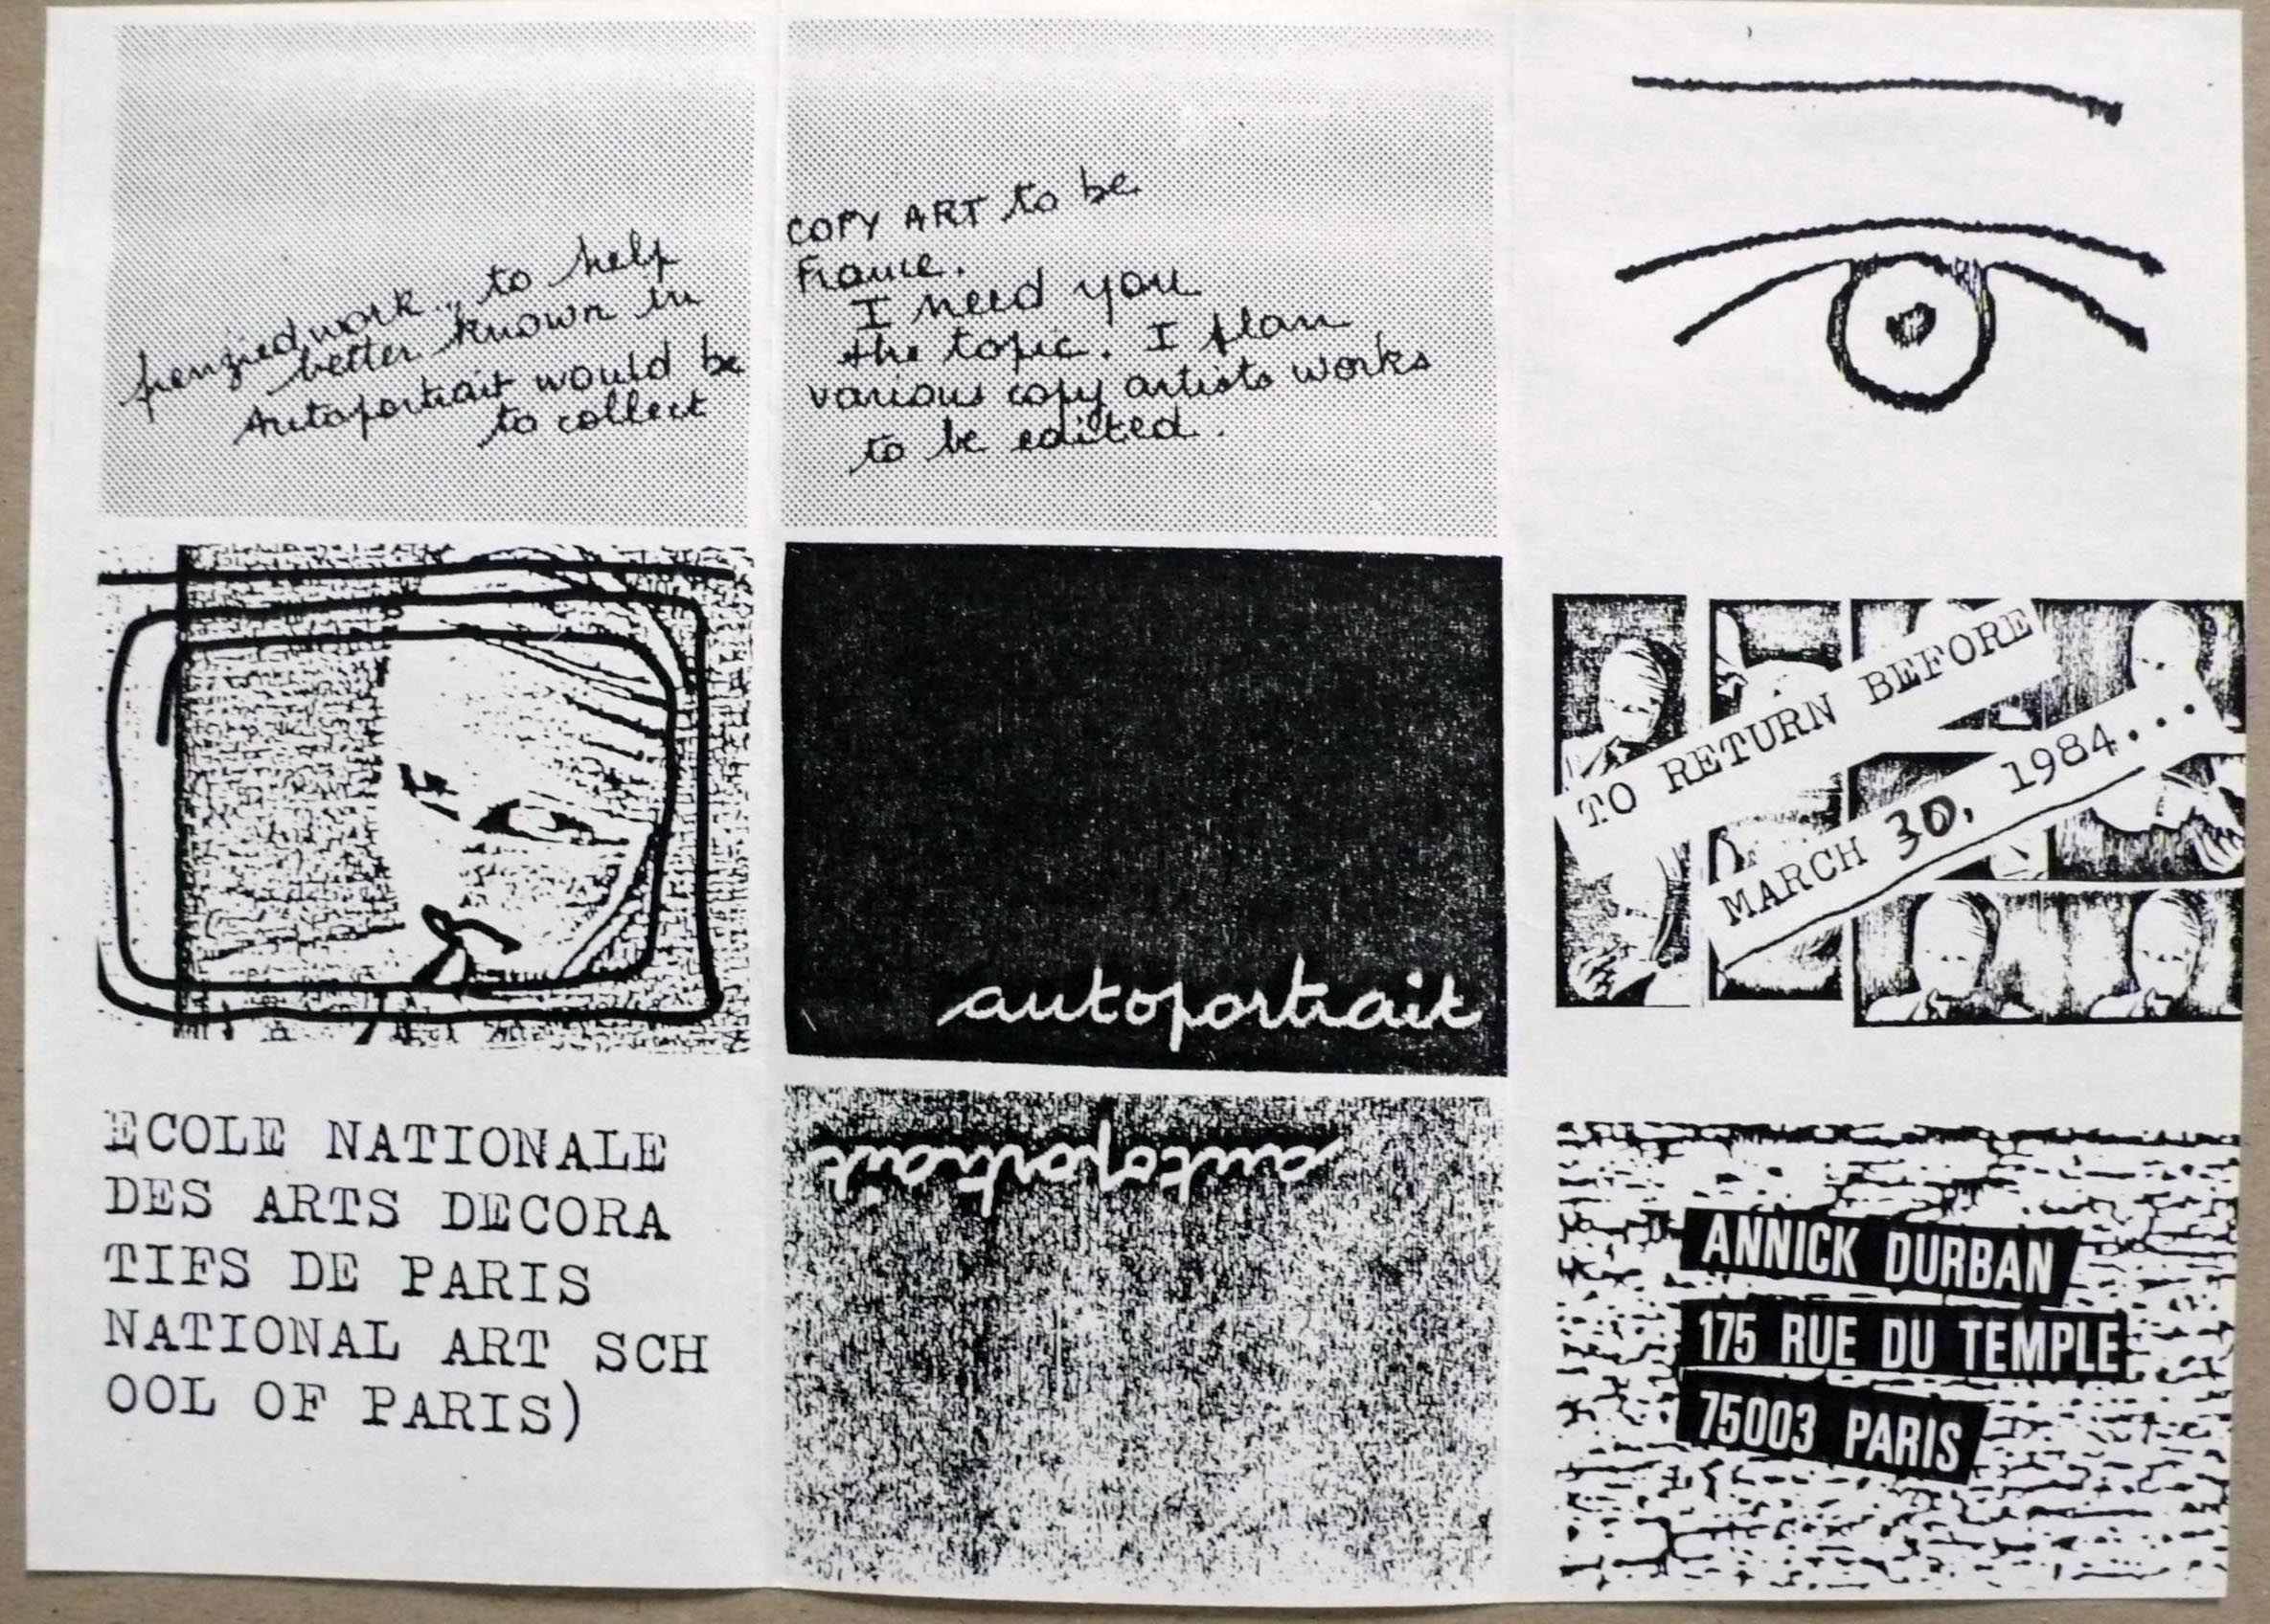 frenzied work... to help
better known in
Autoportrait would be
to collect
COPY ART to be
France.
I need you
the topic. I plan
various copy artists works
to be edited.
TO RETURN BEFORE
MARCH 30, 1984...
autoportrait
autoportrait
ECOLE NATIONALE
DES ARTS DECORA
TIFS DE PARIS
NATIONAL ART SCH
OOL OF PARIS)
ANNICK DURBAN
175 RUE DU TEMPLE
75003 PARIS